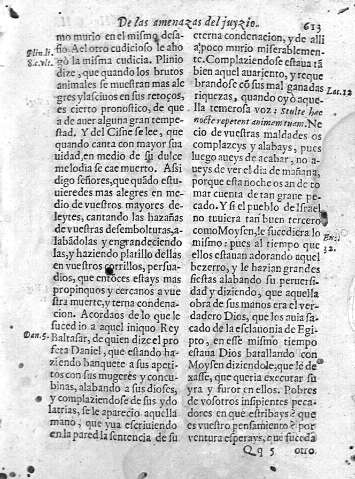 De las amenazas del juyzio.
613
mo murio en el mismo desa-
fio. Ael otro cudicioso le aho
gò la misma cudicia. Plinio
dize, que quando los brutos
animales se muestran mas ale
gres y lasciuos en sus retoços,
es cierto pronostico, de que
a de auer alguna gran tempe-
stad. Y del Cisne se lee, que
quando canta con mayor sua
uidad, en medio de su dulce
melodia se cae muerto. Assi
digo señores, que quãdo estu-
uieredes mas alegres en me-
dio de vuestros mayores de-
leytes, cantando las hazañas
de vuestras desembolturas, a-
labãdolas y engrandeciendo
las, y haziendo plarillo dellas
en vuestros corrillos, persua-
dios, que entoces estays mas
propinquos y cercanos a vue
stra muerte, y terna condena-
cion. Acordaos de lo que le
sucedio a aquel iniquo Rey
Baltasar, de quien dize el pro
feta Daniel, que estando ha-
ziendo banquete a sus apeti-
tos con sus mugeres y concu-
binas, alabando a sus dioses,
y complaziendose de sus ydo
latrias, se le aparecio aquella
mano, que yua escriuiendo
en la pared la sentencia de su
Plin. li.
8. c. vlt.
Dan. 5.
eterna condenacion, y de alli
a poco murio miserablemen-
te. Complaziendose estaua tã
bien aquel auariento, y reque
brandose cõ sus mal ganadas
riquezas, quando oyò aque-
lla temerosa voz: Stulte hac
nocte repetent animam tuam. Ne
cio de vuestras maldades os
complazeys y alabays, pues
luego aueys de acabar, no a-
ueys de ver el dia de mañana,
porque esta noche os an de to
mar cuenta de tan grane pe-
cado. Y si el pueblo de Israel
no tuuiera tan buen tercero
como Moysen, le sucediera lo
mismo: pues al tiempo que
ellos estauan adorando aquel
bezerro, y le hazian grandes
fiestas alabando su peruersi-
dad y diziendo, que aquella
obra de sus manos era el ver-
dadero Dios, que los auia sa-
cado de la esclauonia de Egi-
pto, en esse mismo tiempo
estaua Dios batallando con
Moysen diziendole, que le de
xasse, que queria executar su
yra y furor en ellos. Pobres
de vosotros insipientes peca-
dores en que estribays? que
es vuestro pensamiento? por
ventura esperays, que suceda
Luc. 12
32.
Qq 5
otro